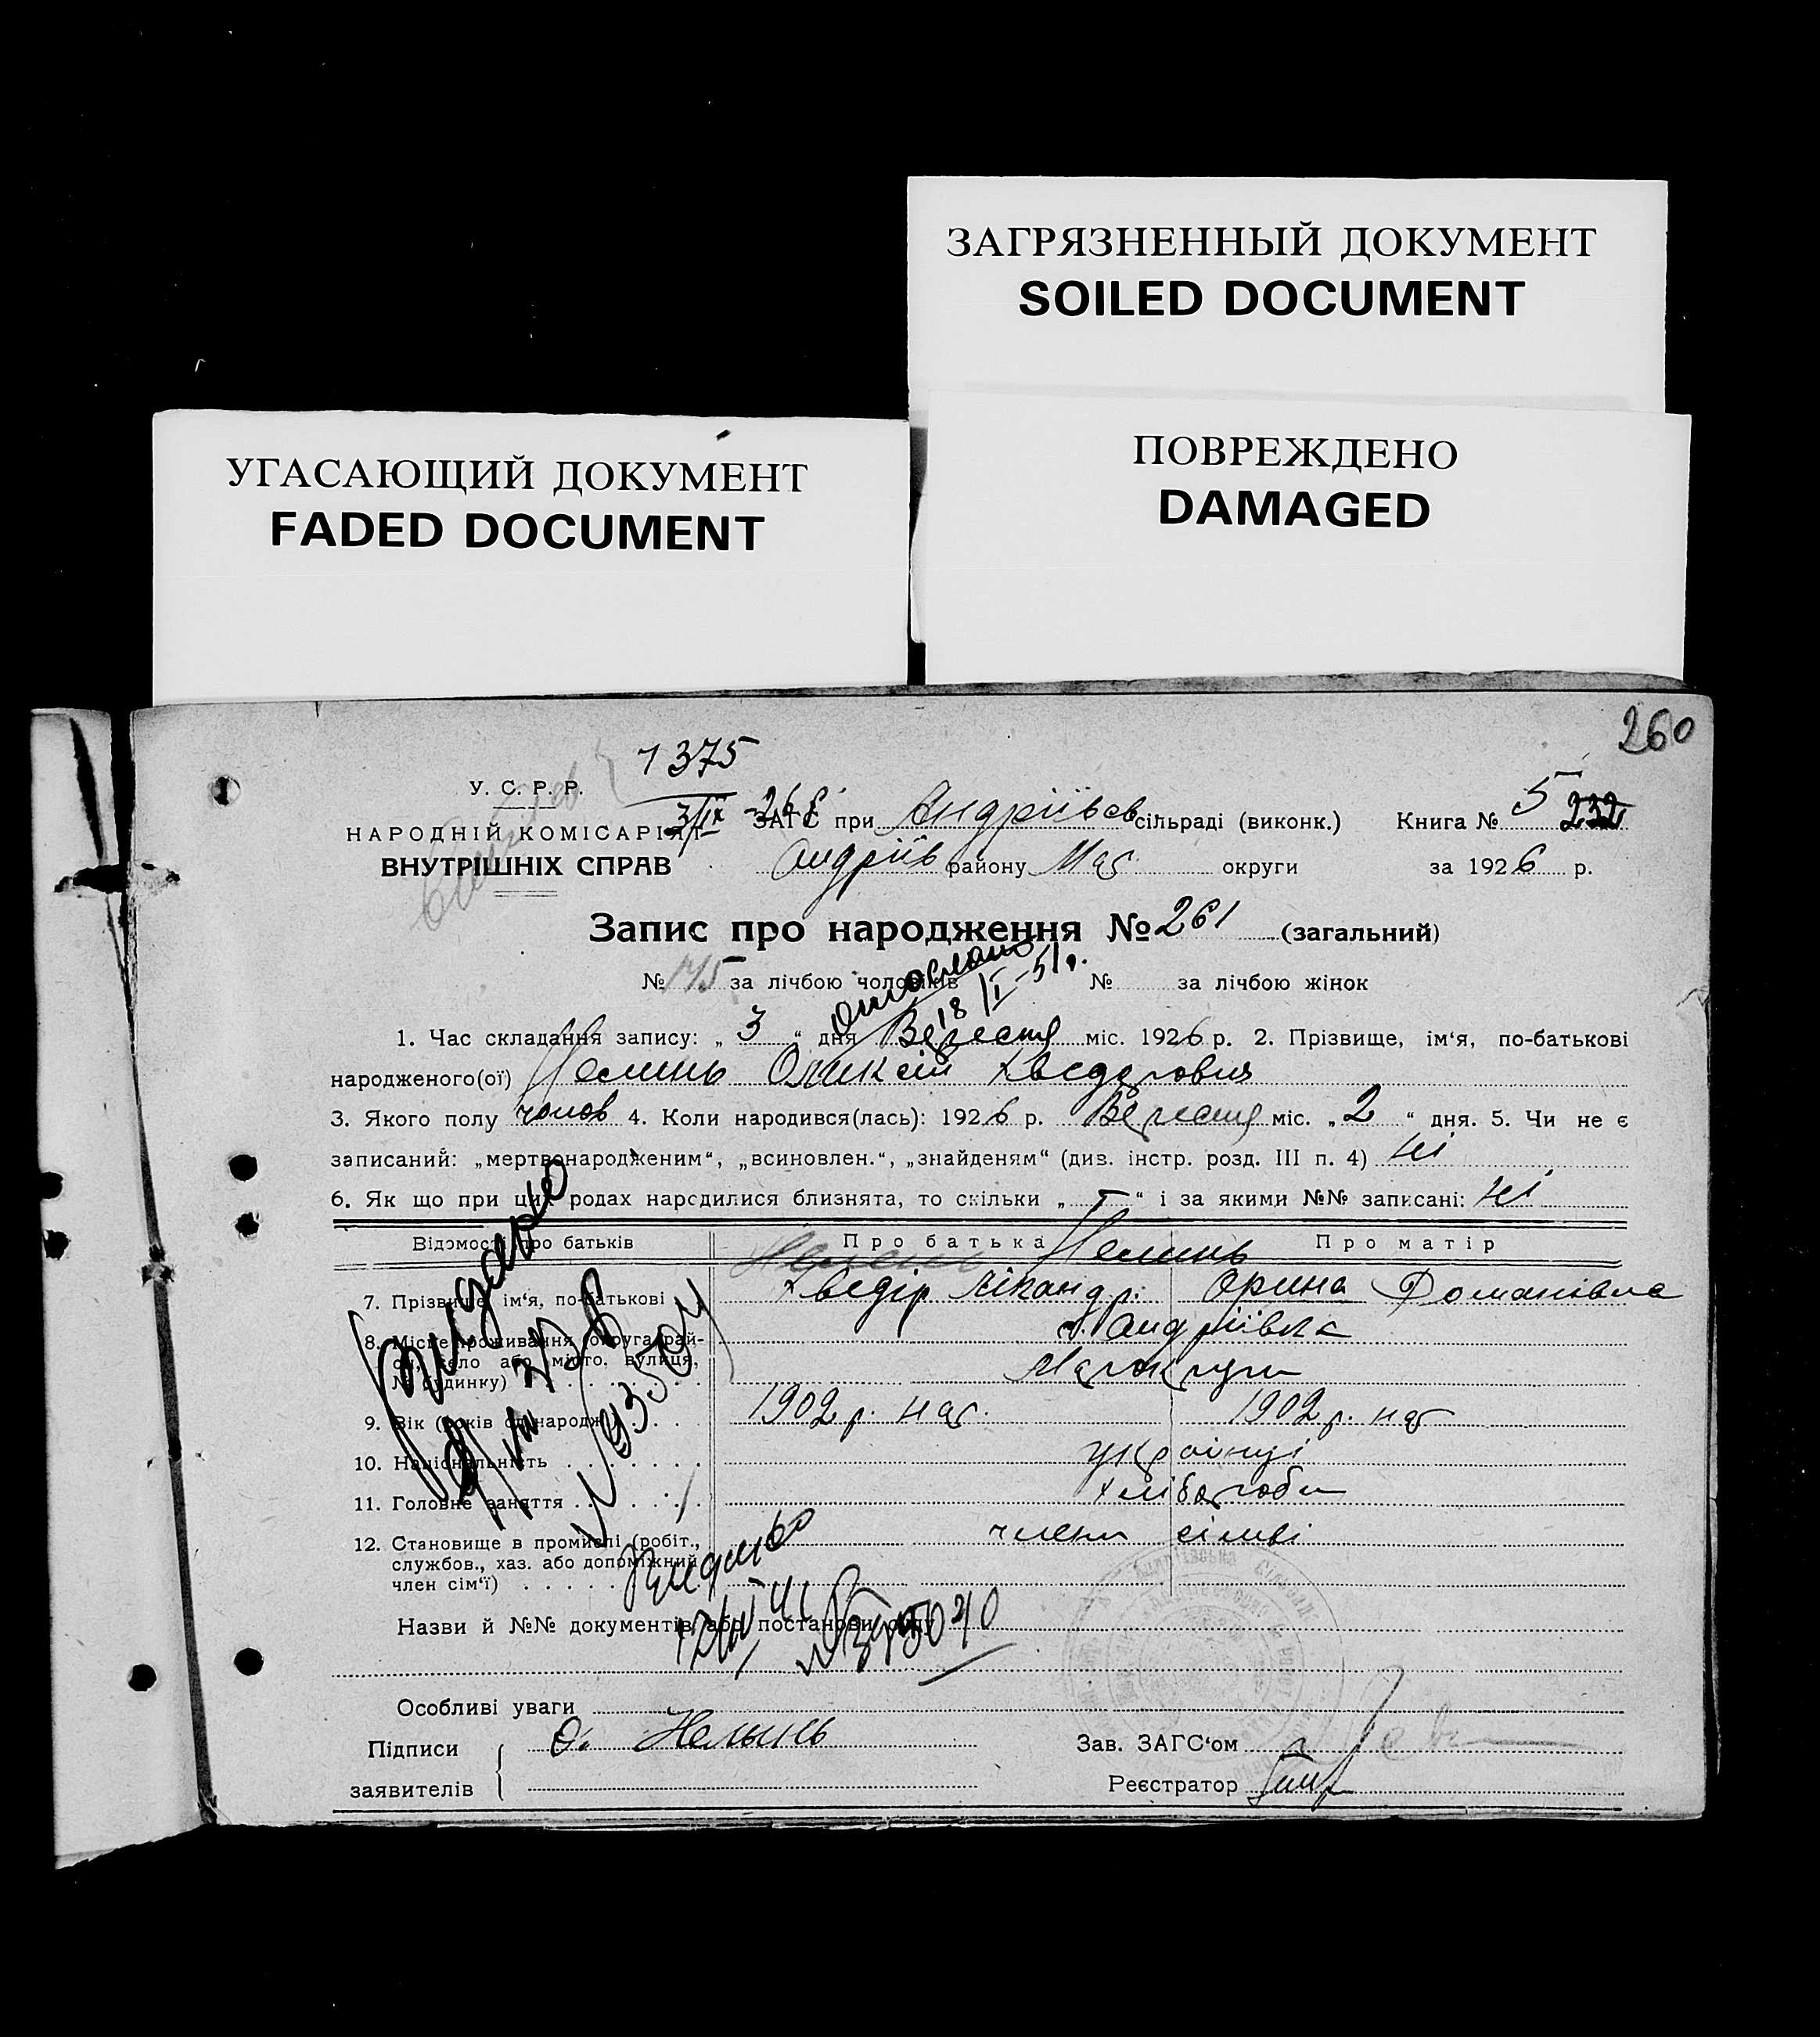 ЗАГРЯЗНЕННЫЙ ДОКУМЕНТ
SOILED DOCUMENT
УГАСАЮЩИЙ ДОКУМЕНТ
FADED DOCUMENT
ПОВРЕЖДЕНО
DAMAGED
260
1375
У. С. Р. Р.
НАРОДНІЙ КОМІСАРІЯТ
ВНУТРІШНІХ СПРАВ
3/IX -26 р
ЗАГС при Андріївсв сільраді (виконк.) Книга № 5 232
Андріїв району Мар округи за 1926 р.
Запис про народження № 261 (загальний)
№ 175 за лічбою чоловіків № за лічбою жінок
18/I-51р.
1. Час складання запису: „ 3 “ дня Вересня міс. 1926 р. 2. Прізвище, ім‘я, по-батькові
народженого(ої) Нелинь Олексій Хведорович
3. Якого полу чолов 4. Коли народився(лась): 1926 р. Вересня міс. „ 2 “ дня. 5. Чи не є
записаний: „мертвонародженим“, „всиновлен.“, „знайденям“ (див. інстр. розд. III п. 4) ні
6. Як що при цих родах народилися близнята, то скільки „ I “ і за якими №№ записані: ні
Відомості про батьків Про батька Про матір
Нелинь
7. Прізвище, ім‘я, по-батькові Хведір Нікандр. Орина Домановна
8. Місце проживання (округа, рай-
он, село або місто, вулиця,
№ будинку) с. Андріївка
Маріокруги
9. Вік (років од народж.) 1902 р. нар. 1902 р. нар
10. Національність українці
11. Головне заняття хлібороби
12. Становище в промислі (робіт.,
службов., хаз. або допоміжний
член сім‘ї) члени сімьі
Видано
Видано
Назви й №№ документів або постанови суду
Особливі уваги
Підписи
заявителів
Ѳ. Нелинь
Зав. ЗАГС‘ом
Реєстратор